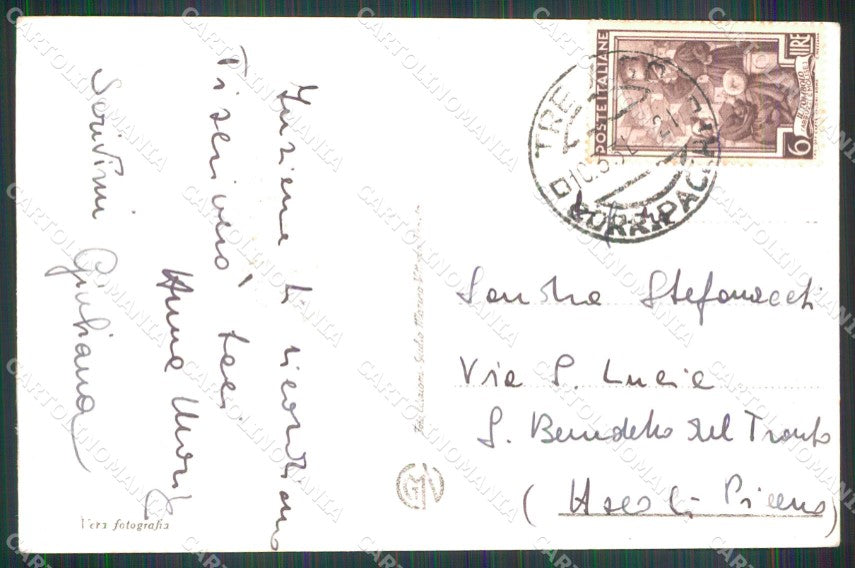 Insieme ti ricordiamo
Ti scriverò, baci
Anna Maria
Scrivimi Giuliana
Vera fotografia
POSTE ITALIANE
LIRE
6
TRE
10.5.52
CORR. PACCHI
Sandra Stefanacci
Via S. Lucia
S. Benedetto del Tronto
(Ascoli Piceno)
CARTOLINOMANIA